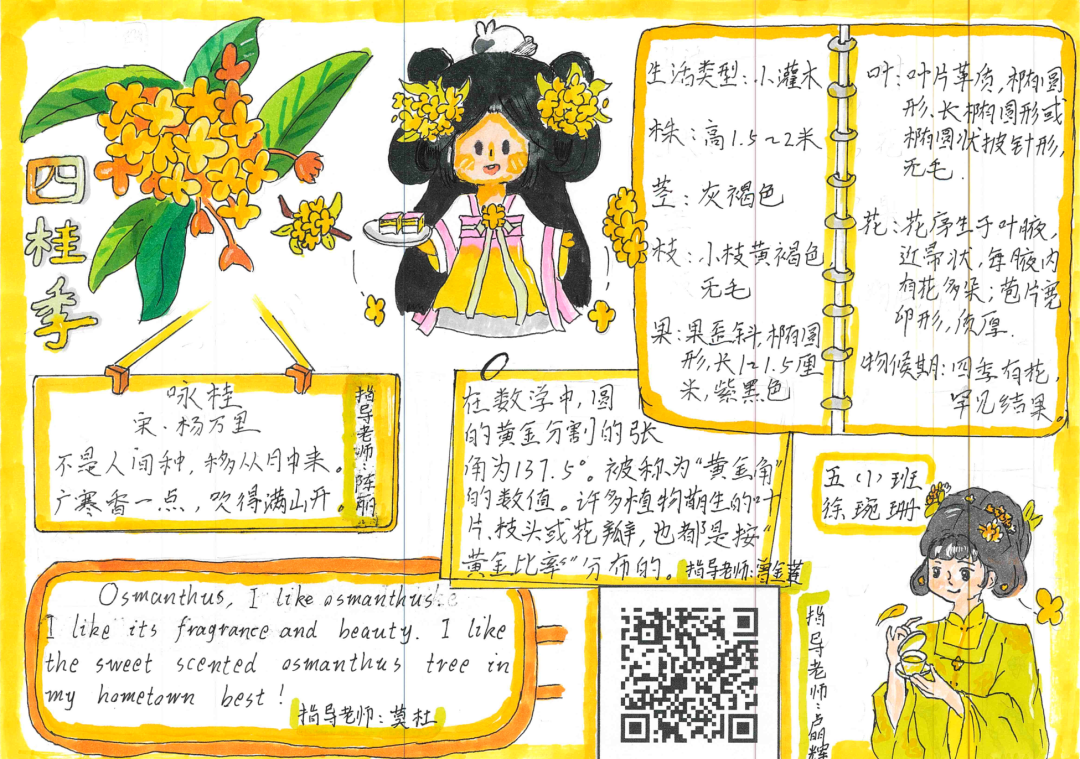 四季桂
生活类型：小灌木
株：高1.5~2米
茎：灰褐色
枝：小枝黄褐色，
无毛
果：果歪斜，椭圆
形，长1~1.5厘
米，紫黑色
叶：叶片革质，椭圆
形、长椭圆形或
椭圆状披针形，
无毛.
花：花序生于叶腋，
近帚状，每腋内
有花多朵；苞片宽
卵形，质厚.
物候期：四季有花，
罕见结果。
咏桂
宋·杨万里
不是人间种，移从月中来。
广寒香一点，吹得满山开。
指导老师：陈丽
在数学中，圆
的黄金分割的张
角为137.5°。被称为“黄金角”
的数值。许多植物萌生的叶
片、枝头或花瓣，也都是按“
黄金比率”分布的。
指导老师：曾金莲
五（1）班
徐琬珊
Osmanthus, I like osmanthus.
I like its fragrance and beauty. I like
the sweet scented osmanthus tree in
my hometown best!
指导老师：莫杜
指导老师：卢明辉